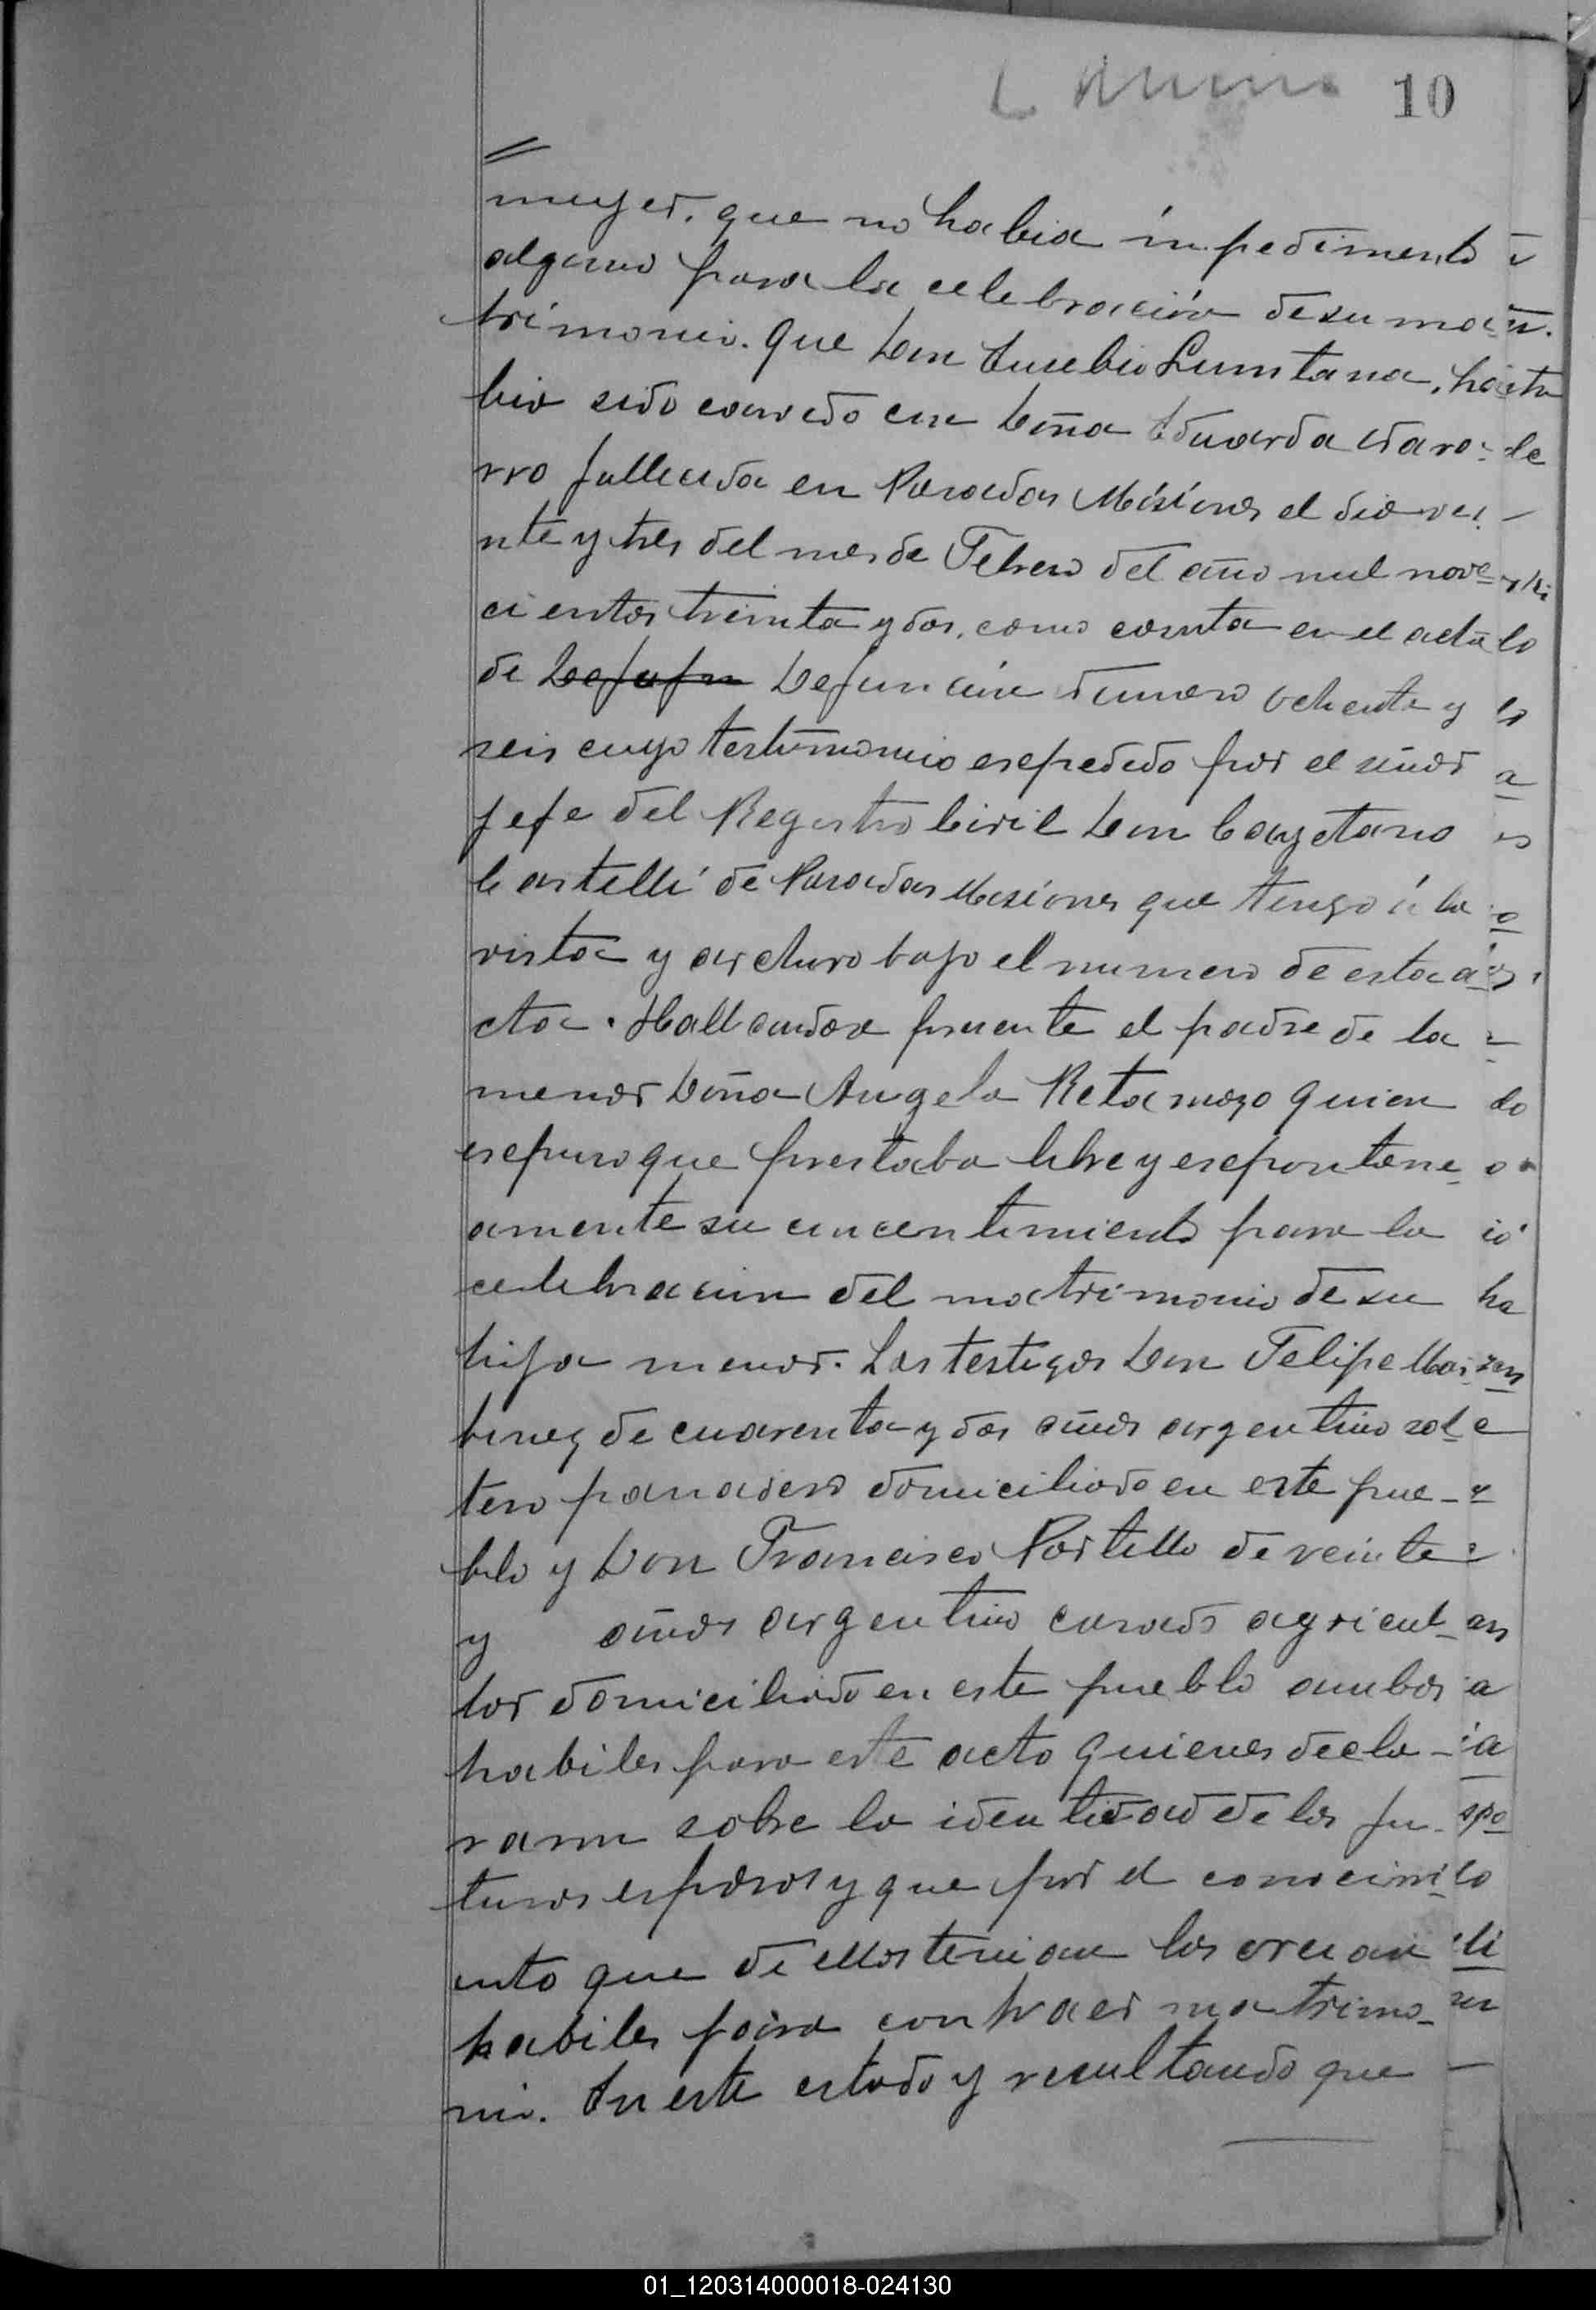 10
mujer. que no habia impedimento
alguno para la celebración de su ma
trimonio. Que Don Eusebio Quintana, ha
bia sido casado con Doña Eduarda
rro fallecida en Posadas Misiones el dia vei
nte y tres del mes de Febrero del año mil nove
cientos treinta y dos, como consta en el acta
de Defunción número ochenta y
seis cuyo testimonio espedido por el señor
jefe del Registro Civil Don Cayetano
Castelli de Posadas Misiones que tengo á la
vista y archivo bajo el numero de esta a
cta. Hallandose presente el padre de la
menor Doña Angela Retamozo quien
espuso que prestaba libre y espontane
amente su concentimiento para la
celebracion del matrimonio de su
hija menor. Los testigos Don Felipe Mar
tinez de cuarenta y dos años argentino sol
tero panadero domiciliado en este pue-
blo y Don Francisco Portillo de veinte
y años argentino casado agricul
tor domiciliado en este pueblo ambos
habiles para este acto quienes decla-
raron sobre la identidad de los fu-
turos esposos y que por el conocimi
ento que de ellos tenian los creian
habiles para contraer matrimo-
nio. En este estado y resultando que
01_120314000018-024130